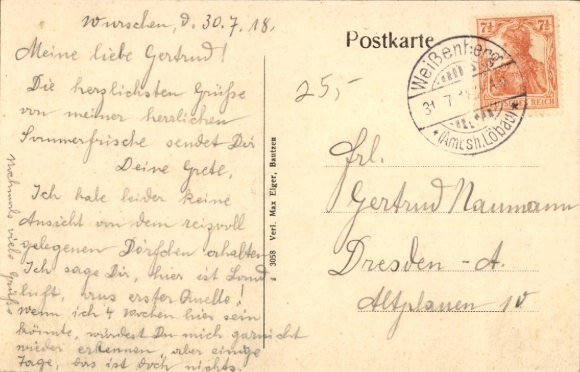 Wurschen, d. 30.7.18.
Meine liebe Gertrud!
Die herzlichsten Grüsse
von meiner herrlichen
Sommerfrische sendet Dir
Deine Grete,
Ich habe leider keine
Ansicht von dem reizvoll
gelegenen Dörfchen erhalten
Ich sage Dir, hier ist Land
luft, aus erster Quelle,
wenn ich 4 Wochen hier sein
könnte, würdest Du mich garnicht
wieder erkennen aber einige
Tage, das ist doch nichts.
Nochmals viele Grüße
3058 Verl. Max Elger, Bautzen
Postkarte
25,-
7½ 7½
DEUTSCHES REICH
Weißenberg
31 7
* (Amtsh. Löbau) *
Frl.
Gertrud Naumann
Dresden - A.
Altplauen 10